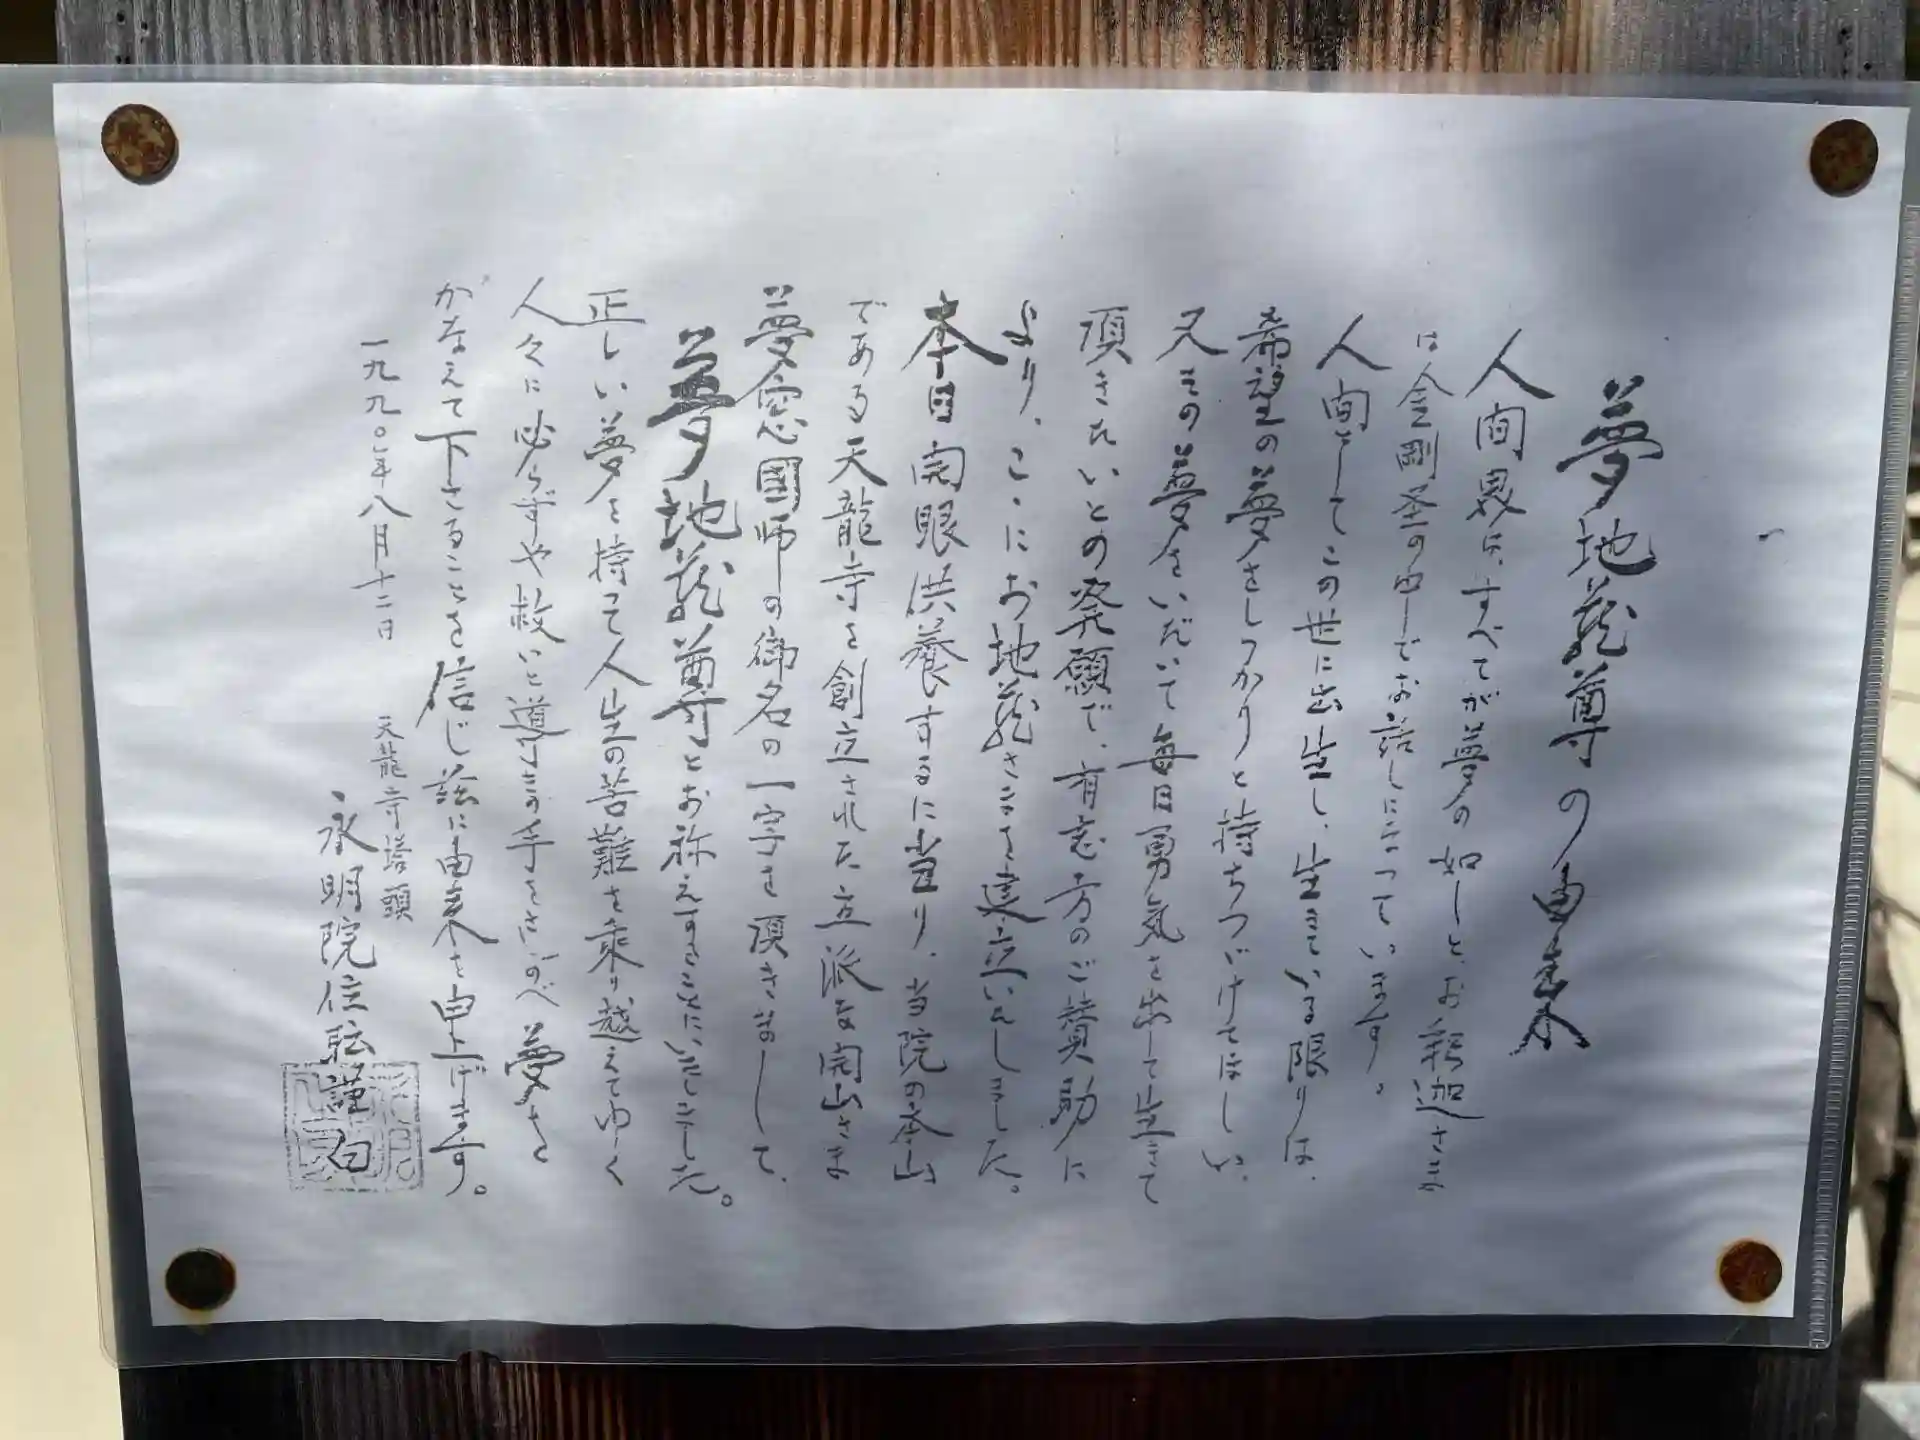 夢地蔵尊の由来
人間界は、すべてが夢の如しとお釈迦さま
は金剛経の中でお話しになっています。
人間としてこの世に出生し、生きている限りは、
希望の夢をしっかりと持ちつづけてほしい、
又その夢をいだいて毎日勇気を出して生きて
頂きたいとの発願で、有志方のご賛助に
より、ここにお地蔵さまを建立いたしました。
本日開眼供養するに当り、当院の本山
である天龍寺を創立された立派な開山さま
夢窓國師の御名の一字を頂きまして、
夢地蔵尊とお称えすることに致しました。
正しい夢を持って人生の苦難を乗り越えてゆく
人々に必らずや救いと導きの手をさしのべ夢を
かなえて下さることを信じ茲に由来を申上げます。
一九九〇年八月十二日
天龍寺塔頭
永明院住職謹白